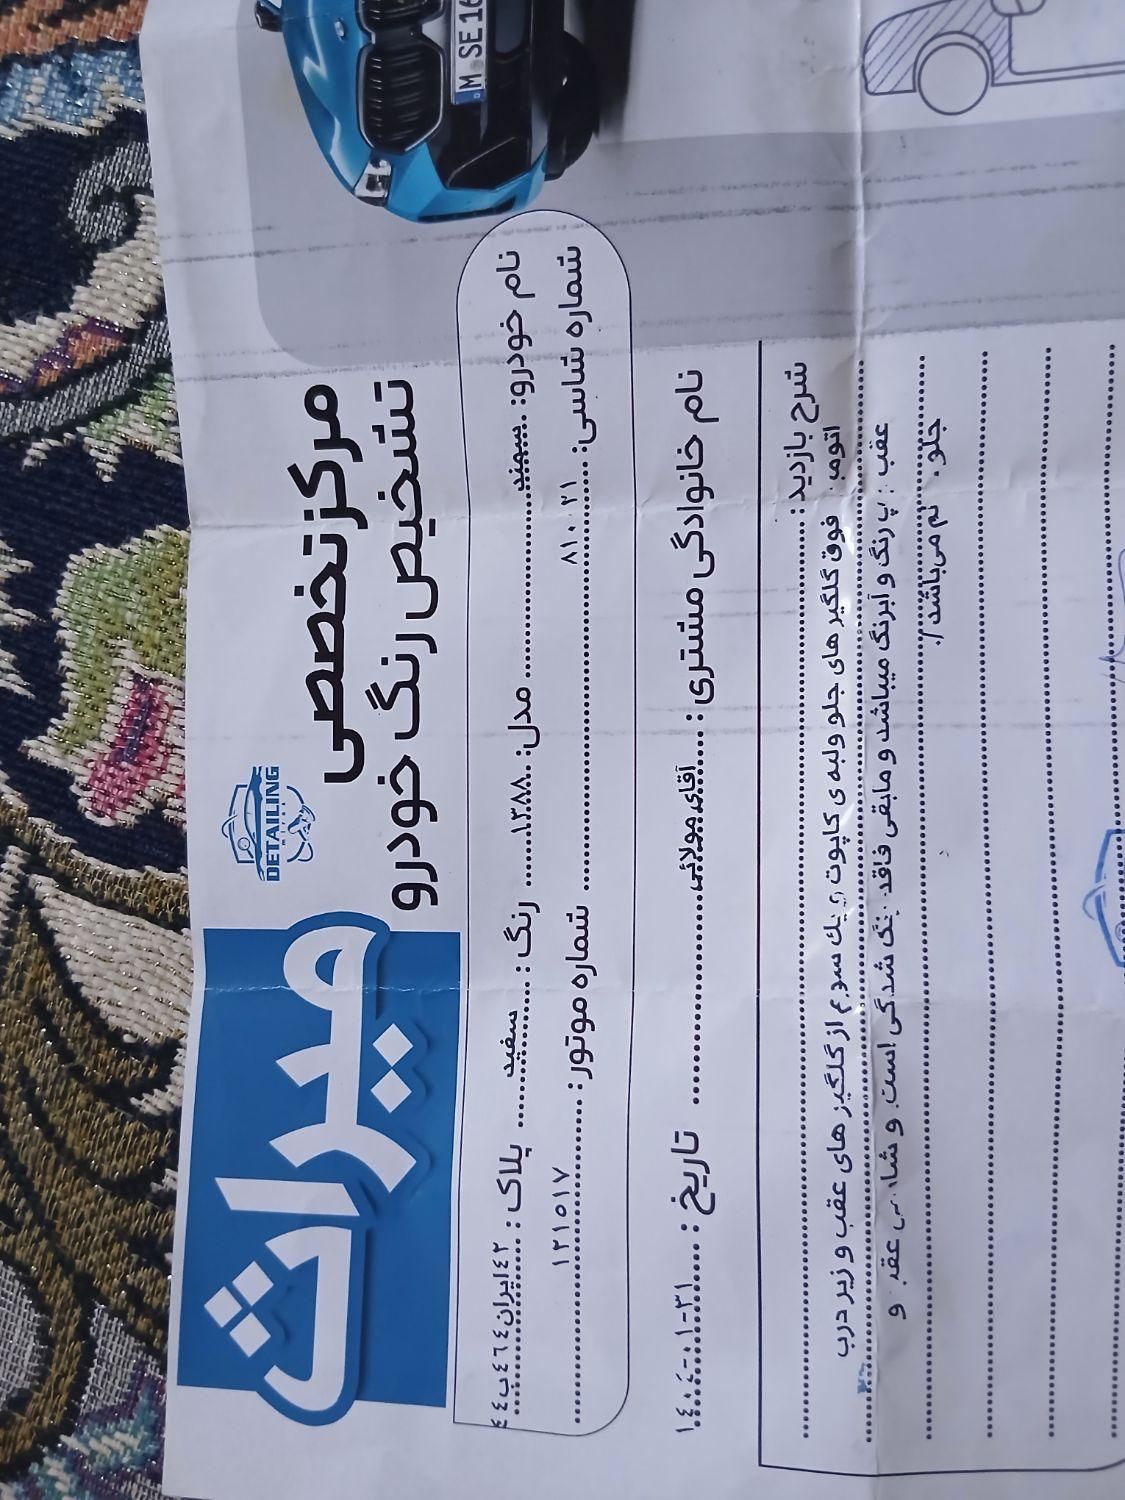 M SE 16
میرات
DETAILING
مرکز تخصصی
تشخیص رنگ خودرو
نام خودرو: سمند مدل: ۱۳۸۸ رنگ: سفید پلاک: ۴۲ایران۴۶۴ب۴۴
شماره شاسی: ۸۱۰۰۲۱ شماره موتور: ۱۲۱۵۱۷
نام خانوادگی مشتری: آقای مولائی تاریخ: ۱۴۰۴-۰۱-۳۱
شرح بازدید:
فوق گلگیر های جلو ولبه ی کاپوت یک سوم از گلگیر های عقب و زیر درب
عقب : پ رنگ و آبرنگ میباشد و مابقی فاقد شدگی است و عقب و
جلو. می‌باشد/.